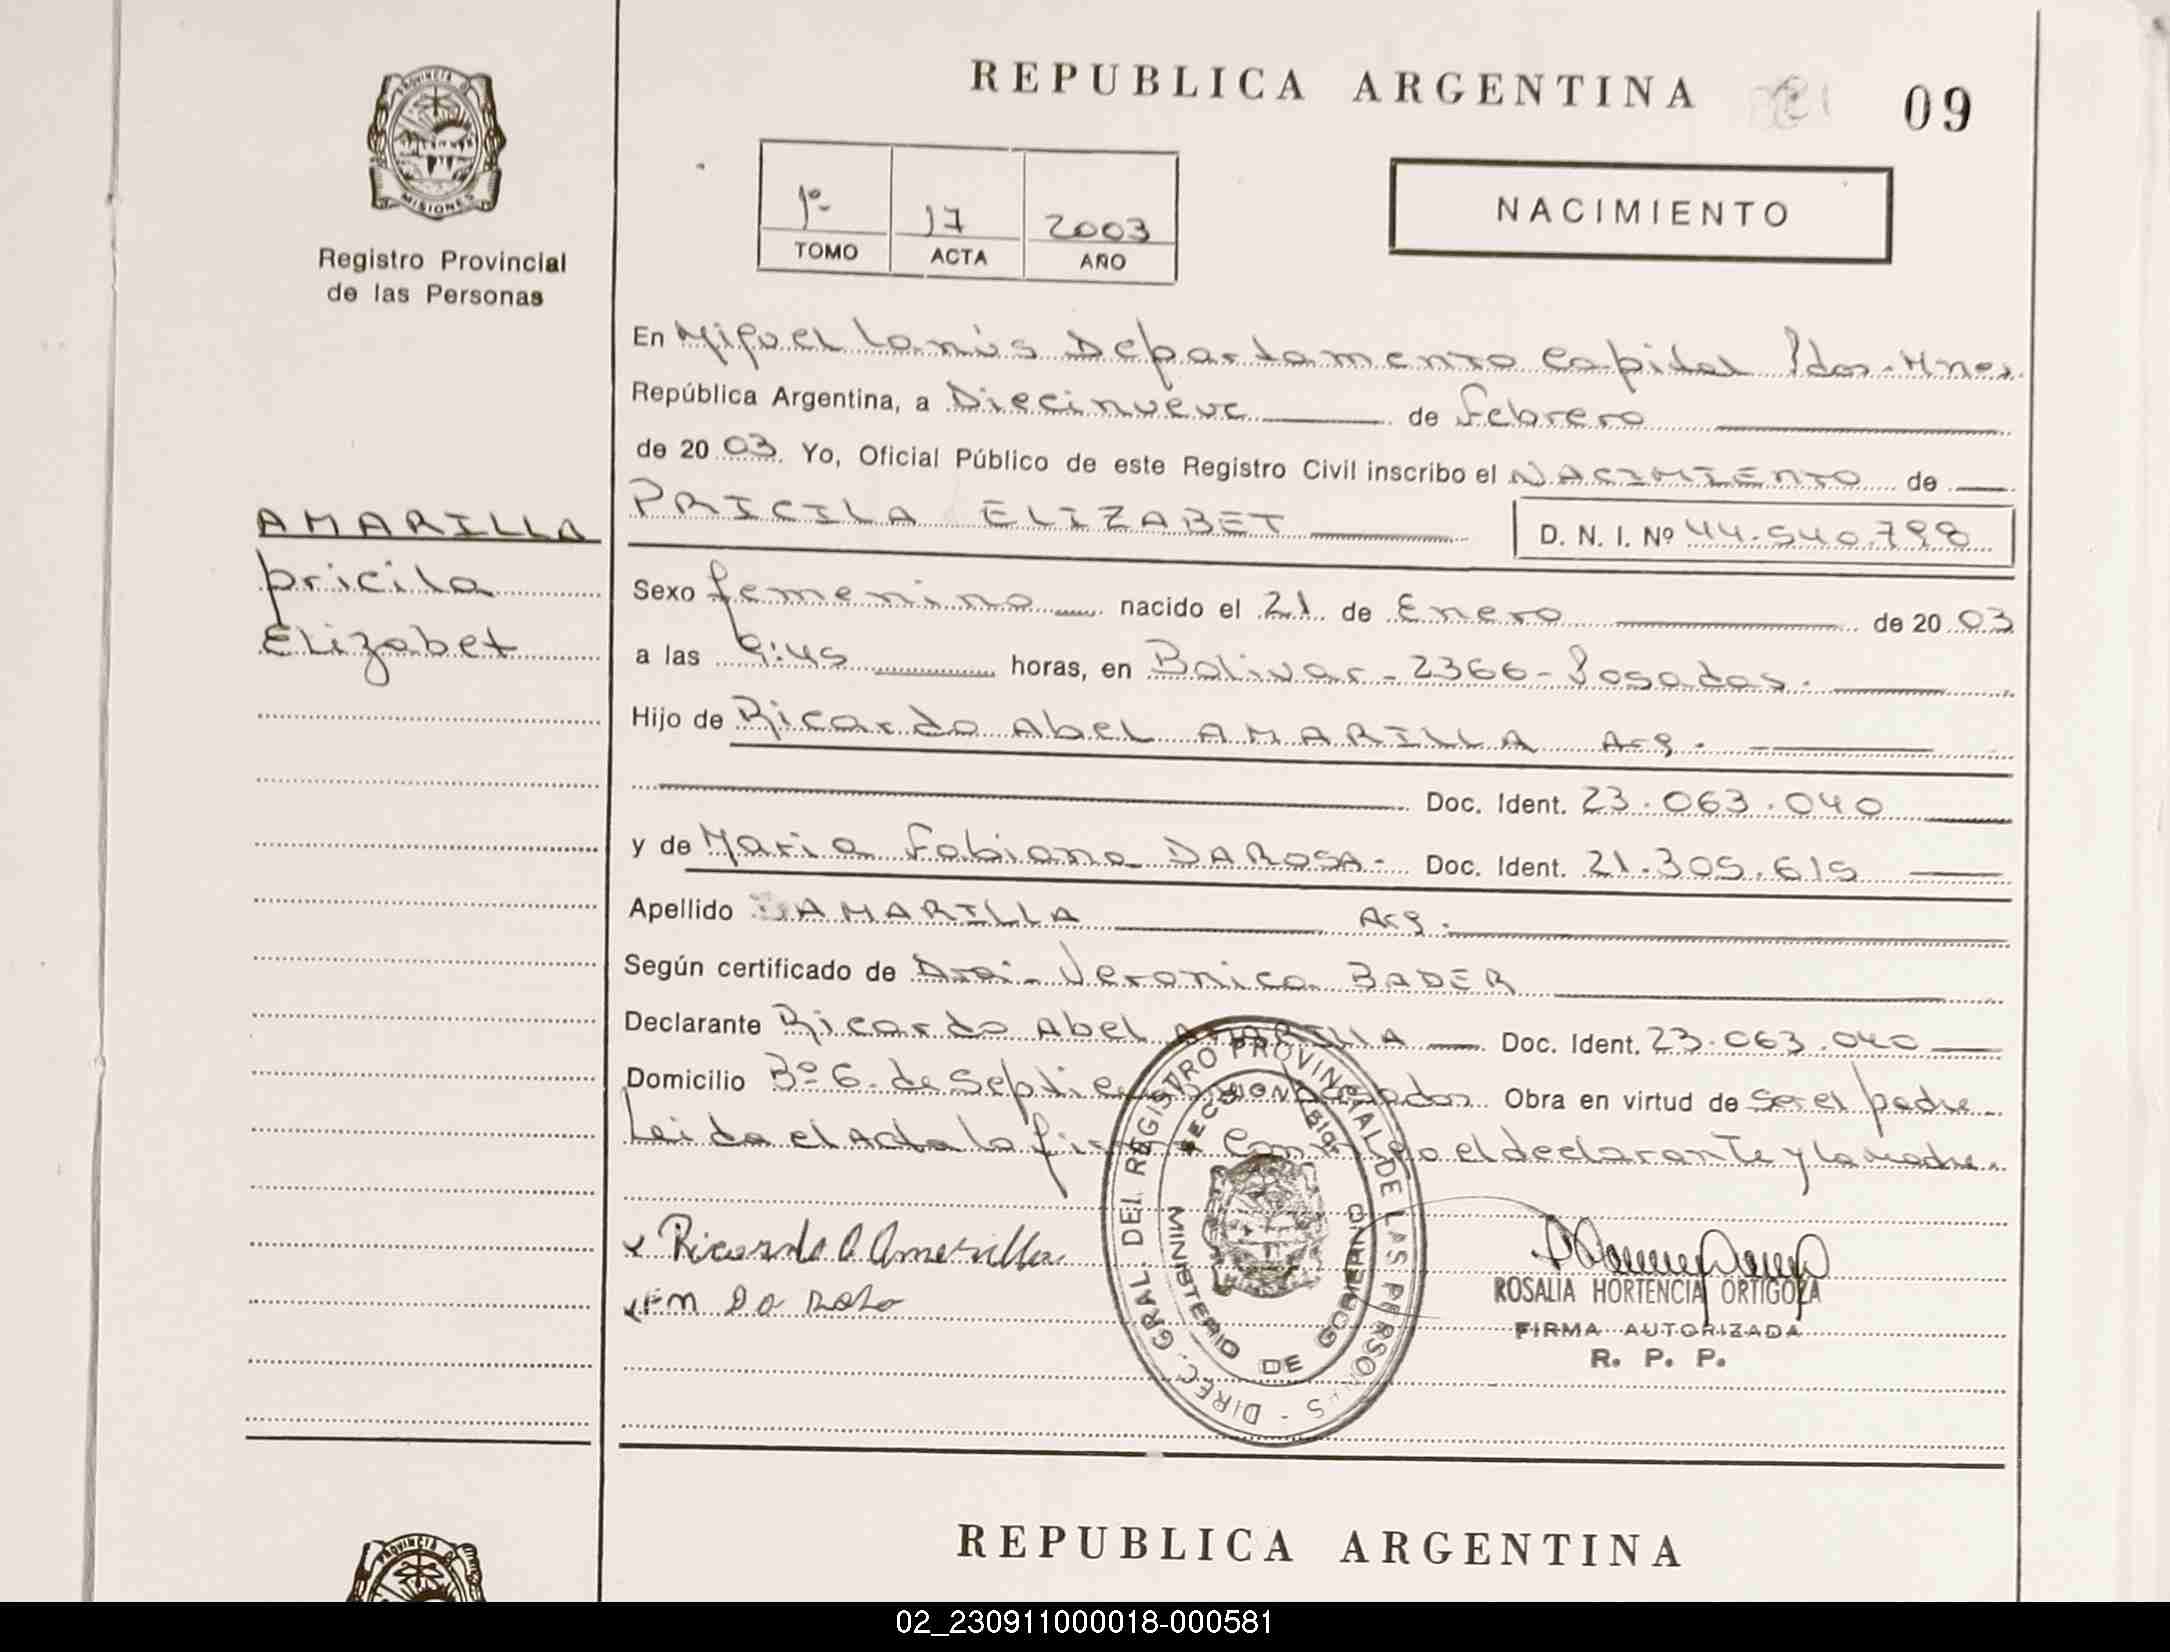 REPUBLICA ARGENTINA
09
PROVINCIA DE
MISIONES
Registro Provincial
de las Personas
1º 17 2003
TOMO ACTA AÑO
NACIMIENTO
En Miguel Lanús Departamento Capital Pdas. Mnes.
República Argentina, a Diecinueve de Febrero
de 2003. Yo, Oficial Público de este Registro Civil inscribo el NACIMIENTO de
PRICILA ELIZABET D. N. I. Nº 44.540.798
AMARILLA
Pricila
Elizabet
Sexo femenino nacido el 21 de Enero de 2003
a las 9:45 horas, en Bolivar - 2366 - Posadas.
Hijo de Ricardo Abel AMARILLA Arg.
Doc. Ident. 23.063.040
y de Maria Fabiana DAROSA - Doc. Ident. 21.305.615
Apellido AMARILLA Arg.
Según certificado de Veronica BADER
Declarante Ricardo Abel AMARILLA Doc. Ident. 23.063.040
Domicilio Bº 6 de Septiembre Posadas Obra en virtud de ser el padre
Leida el Acta la firma conmigo el declarante y la madre.
DIREC. GRAL. DEL REGISTRO PROVINCIAL DE LAS PERSONAS
MINISTERIO DE GOBIERNO
x Ricardo A Amarilla
x FM Da Rosa
ROSALIA HORTENCIA ORTIGOZA
FIRMA AUTORIZADA
R. P. P.
REPUBLICA ARGENTINA
PROVINCIA DE
02_230911000018-000581